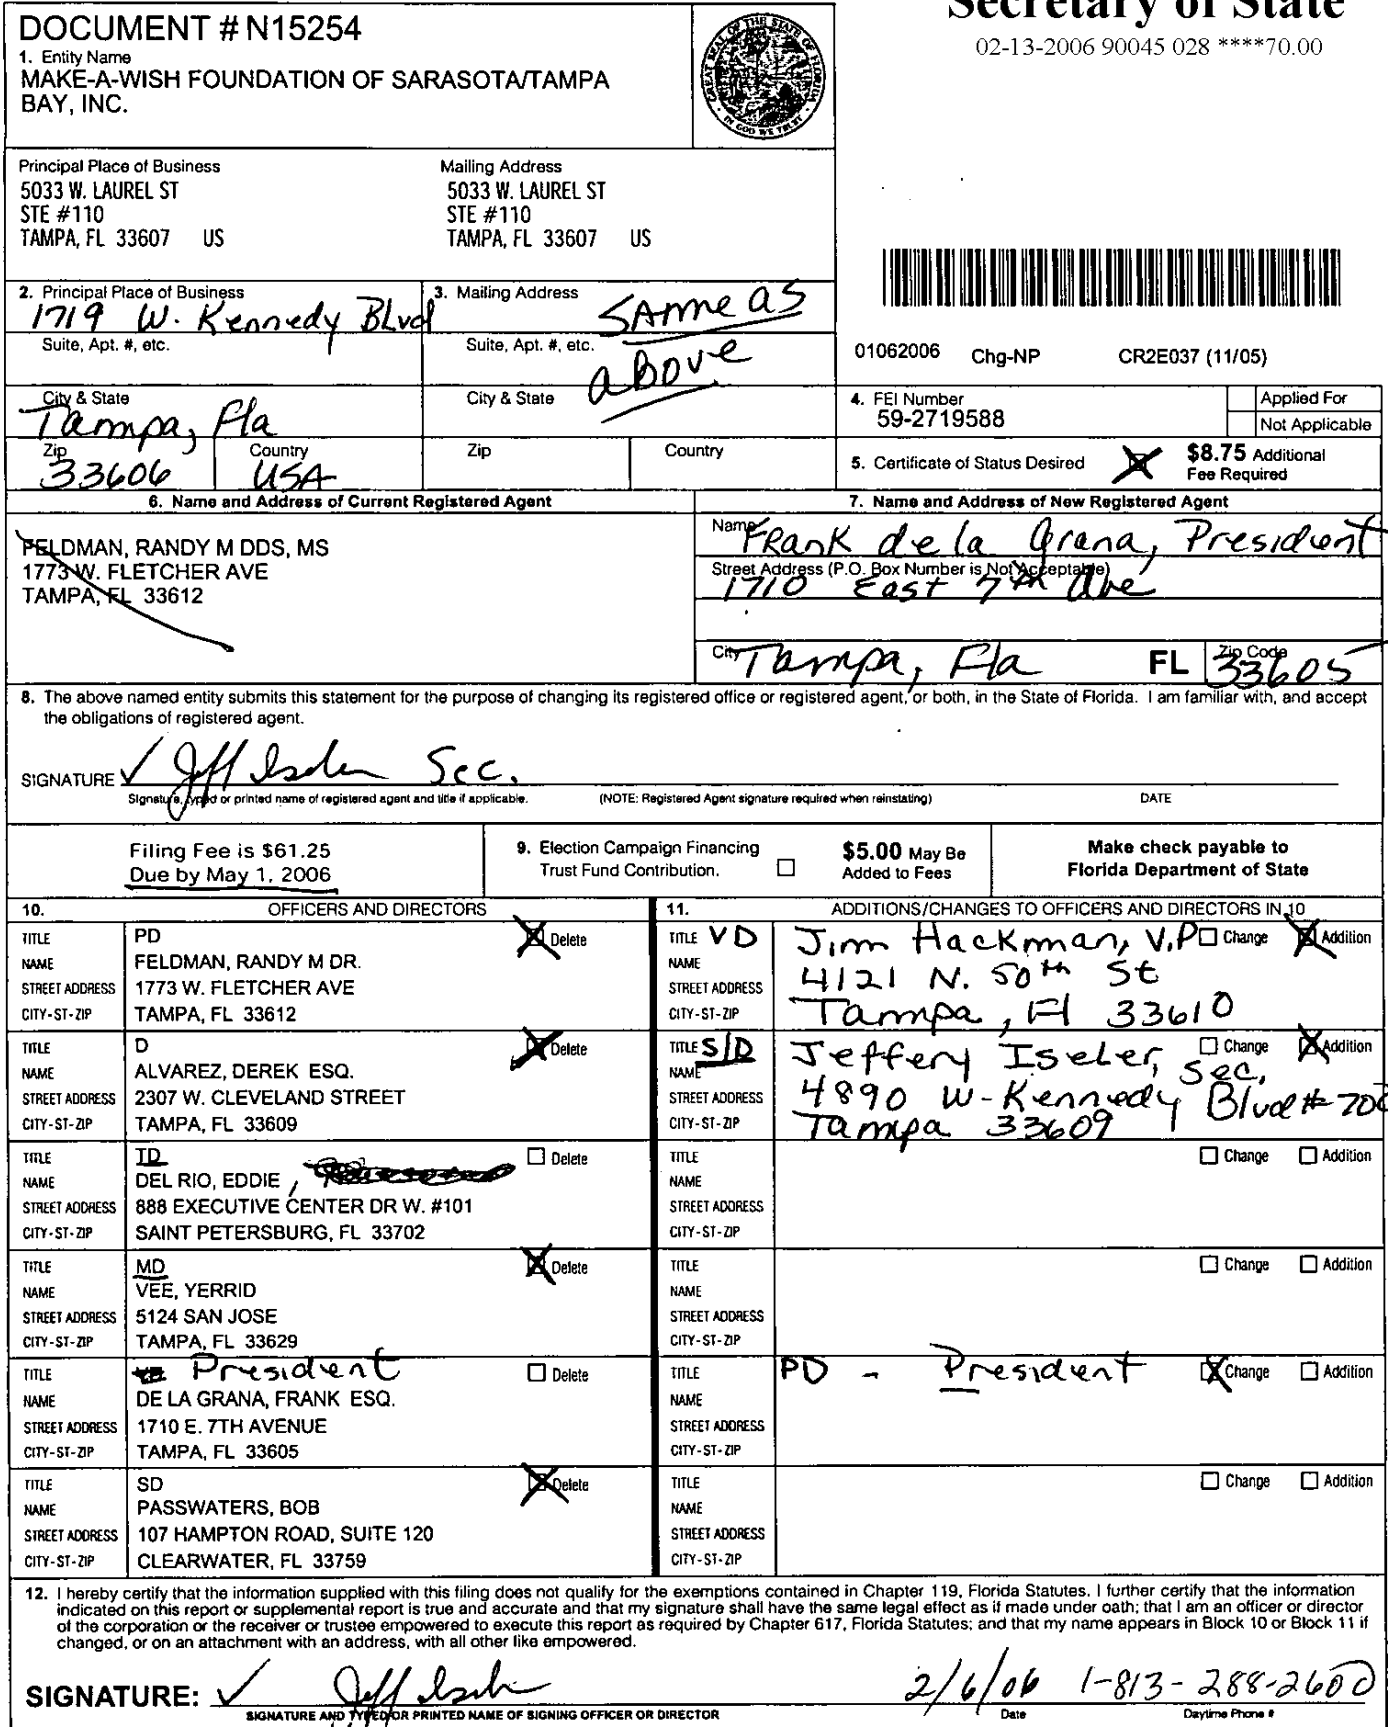 Secretary of State
02-13-2006 90045 028 ****70.00
DOCUMENT # N15254
1. Entity Name
MAKE-A-WISH FOUNDATION OF SARASOTA/TAMPA
BAY, INC.
GREAT SEAL OF THE STATE OF FLORIDA
IN GOD WE TRUST
Principal Place of Business
5033 W. LAUREL ST
STE #110
TAMPA, FL 33607 US
Mailing Address
5033 W. LAUREL ST
STE #110
TAMPA, FL 33607 US
2. Principal Place of Business
1719 W. Kennedy Blvd
Suite, Apt. #, etc.
City & State
Tampa, Fla
Zip
33606
Country
USA
3. Mailing Address
SAme as
above
Suite, Apt. #, etc.
City & State
Zip
Country
01062006 Chg-NP CR2E037 (11/05)
4. FEI Number
59-2719588
Applied For
Not Applicable
5. Certificate of Status Desired
$8.75 Additional
Fee Required
6. Name and Address of Current Registered Agent
FELDMAN, RANDY M DDS, MS
1773 W. FLETCHER AVE
TAMPA, FL 33612
7. Name and Address of New Registered Agent
Name
Frank de la Grana, President
Street Address (P.O. Box Number is Not Acceptable)
1710 East 7th Ave
City
Tampa, Fla
FL
Zip Code
33605
8. The above named entity submits this statement for the purpose of changing its registered office or registered agent, or both, in the State of Florida. I am familiar with, and accept
the obligations of registered agent.
SIGNATURE Jeff Iseler Sec.
Signature, typed or printed name of registered agent and title if applicable. (NOTE: Registered Agent signature required when reinstating) DATE
Filing Fee is $61.25
Due by May 1, 2006
9. Election Campaign Financing
Trust Fund Contribution.
$5.00 May Be
Added to Fees
Make check payable to
Florida Department of State
10. OFFICERS AND DIRECTORS
TITLE PD Delete
NAME FELDMAN, RANDY M DR.
STREET ADDRESS 1773 W. FLETCHER AVE
CITY-ST-ZIP TAMPA, FL 33612
TITLE D Delete
NAME ALVAREZ, DEREK ESQ.
STREET ADDRESS 2307 W. CLEVELAND STREET
CITY-ST-ZIP TAMPA, FL 33609
TITLE TD Delete
NAME DEL RIO, EDDIE ,
STREET ADDRESS 888 EXECUTIVE CENTER DR W. #101
CITY-ST-ZIP SAINT PETERSBURG, FL 33702
TITLE MD Delete
NAME VEE, YERRID
STREET ADDRESS 5124 SAN JOSE
CITY-ST-ZIP TAMPA, FL 33629
TITLE President Delete
NAME DE LA GRANA, FRANK ESQ.
STREET ADDRESS 1710 E. 7TH AVENUE
CITY-ST-ZIP TAMPA, FL 33605
TITLE SD Delete
NAME PASSWATERS, BOB
STREET ADDRESS 107 HAMPTON ROAD, SUITE 120
CITY-ST-ZIP CLEARWATER, FL 33759
11. ADDITIONS/CHANGES TO OFFICERS AND DIRECTORS IN 10
TITLE VD Jim Hackman, V.P Change Addition
NAME
STREET ADDRESS 4121 N. 50th St
CITY-ST-ZIP Tampa, Fl 33610
TITLE S/D Jeffery Iseler, Sec, Change Addition
NAME
STREET ADDRESS 4890 W-Kennedy Blvd # 700
CITY-ST-ZIP Tampa 33609
TITLE Change Addition
NAME
STREET ADDRESS
CITY-ST-ZIP
TITLE Change Addition
NAME
STREET ADDRESS
CITY-ST-ZIP
TITLE PD - President Change Addition
NAME
STREET ADDRESS
CITY-ST-ZIP
TITLE Change Addition
NAME
STREET ADDRESS
CITY-ST-ZIP
12. I hereby certify that the information supplied with this filing does not qualify for the exemptions contained in Chapter 119, Florida Statutes. I further certify that the information
indicated on this report or supplemental report is true and accurate and that my signature shall have the same legal effect as if made under oath; that I am an officer or director
of the corporation or the receiver or trustee empowered to execute this report as required by Chapter 617, Florida Statutes; and that my name appears in Block 10 or Block 11 if
changed, or on an attachment with an address, with all other like empowered.
SIGNATURE: Jeff Iseler 2/6/06 1-813-288-2600
SIGNATURE AND TYPED OR PRINTED NAME OF SIGNING OFFICER OR DIRECTOR Date Daytime Phone #